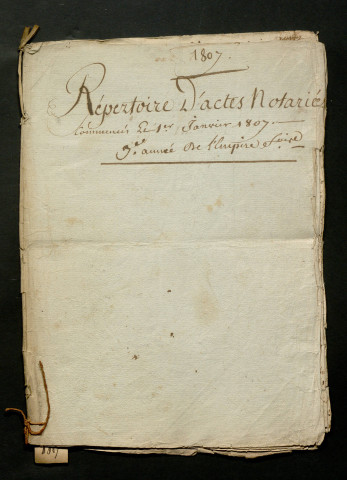 1807.
Répertoire D'actes Notariés
Commencé Le 1er Janvier 1807.
3e année De l'Empire